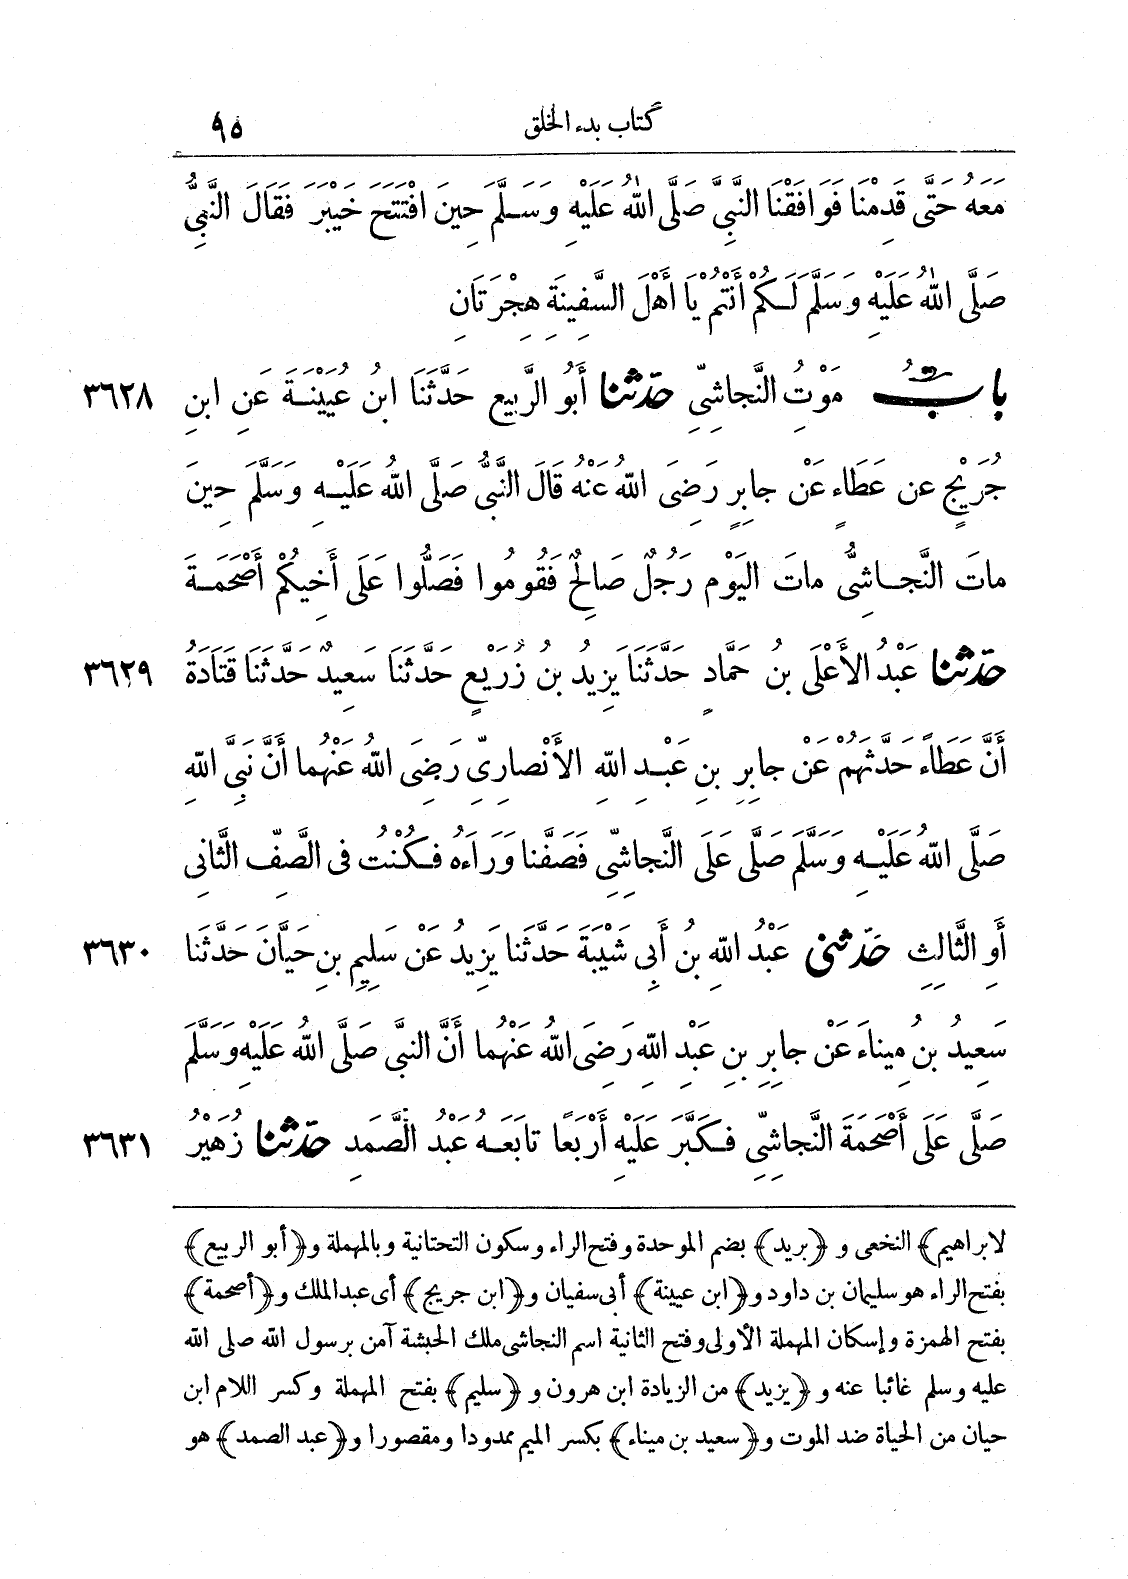 كتاب بدء الخلق ٩٥
مَعَهُ حَتَّى قَدِمْنَا فَوَافَقْنَا النَّبِيَّ صَلَّى اللهُ عَلَيْهِ وَسَلَّمَ حِينَ افْتَتَحَ خَيْبَرَ فَقَالَ النَّبِيُّ
صَلَّى اللهُ عَلَيْهِ وَسَلَّمَ لَكُمْ أَنْتُمْ يَا أَهْلَ السَّفِينَةِ هِجْرَتَانِ
بابُ مَوْتُ النَّجاشِيِّ حدثنا أَبُو الرَّبِيعِ حَدَّثَنَا ابنُ عُيَيْنَةَ عَنِ ابنِ ٣٦٢٨
جُرَيْجٍ عن عَطَاءٍ عَنْ جابِرٍ رَضِىَ اللهُ عَنْهُ قَالَ النَّبِىُّ صَلَّى اللهُ عَلَيْهِ وَسَلَّمَ حِينَ
ماتَ النَّجاشِىُّ ماتَ اليَوْمَ رَجُلٌ صَالِحٌ فَقُومُوا فَصَلُّوا عَلَى أَخِيكُمْ أَصْحَمَةَ
حدثنا عَبْدُ الأَعْلَى بنُ حَمَّادٍ حَدَّثَنَا يَزِيدُ بنُ زُرَيْعٍ حَدَّثَنَا سَعِيدٌ حَدَّثَنَا قَتَادَةُ ٣٦٢٩
أَنَّ عَطَاءً حَدَّثَهُمْ عَنْ جابِرِ بنِ عَبْدِ اللهِ الأَنْصارِىِّ رَضِىَ اللهُ عَنْهُما أَنَّ نَبِىَّ اللهِ
صَلَّى اللهُ عَلَيْهِ وَسَلَّمَ صَلَّى عَلَى النَّجاشِىِّ فَصَفَّنا وَرَاءَهُ فَكُنْتُ فى الصَّفِّ الثَّانِى
أَوِ الثَّالِثِ حَدثنى عَبْدُ اللهِ بنُ أَبِى شَيْبَةَ حَدَّثَنا يَزِيدُ عَنْ سَلِيمِ بنِ حَيَّانَ حَدَّثَنا ٣٦٣٠
سَعِيدُ بنُ مِيناءَ عَنْ جابِرِ بنِ عَبْدِ اللهِ رَضِىَ اللهُ عَنْهُما أَنَّ النبىَّ صَلَّى اللهُ عَلَيْهِ وَسَلَّمَ
صَلَّى عَلَى أَصْحَمَةَ النَّجاشِىِّ فَكَبَّرَ عَلَيْهِ أَرْبَعاً تابَعَهُ عَبْدُ الصَّمَدِ حدثنا زُهَيْرُ ٣٦٣١
لابراهيم﴾ النخعى و ﴿بريد﴾ بضم الموحدة وفتح الراء وسكون التحتانية وبالمهملة و﴿أبو الربيع﴾
بفتح الراء هو سليمان بن داود و﴿ابن عيينة﴾ أبى سفيان و﴿ابن جريج﴾ أى عبد الملك و﴿أصحمة﴾
بفتح الهمزة وإسكان المهملة الأولى وفتح الثانية اسم النجاشى ملك الحبشة آمن برسول الله صلى الله
عليه وسلم غائبا عنه و ﴿يزيد﴾ من الزيادة ابن هرون و ﴿سليم﴾ بفتح المهملة وكسر اللام ابن
حيان من الحياة ضد الموت و﴿سعيد بن ميناء﴾ بكسر الميم ممدودا ومقصورا و﴿عبد الصمد﴾ هو